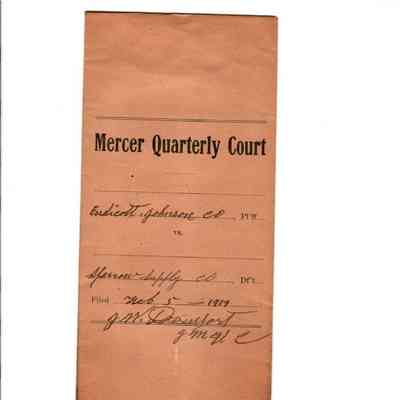 Mercer Quarterly Court
Endicott Johnson Co, Pl'ff
vs.
Sparrow Supply Co, Df't
Filed Feb 5 - 1919
J.W. Davenport